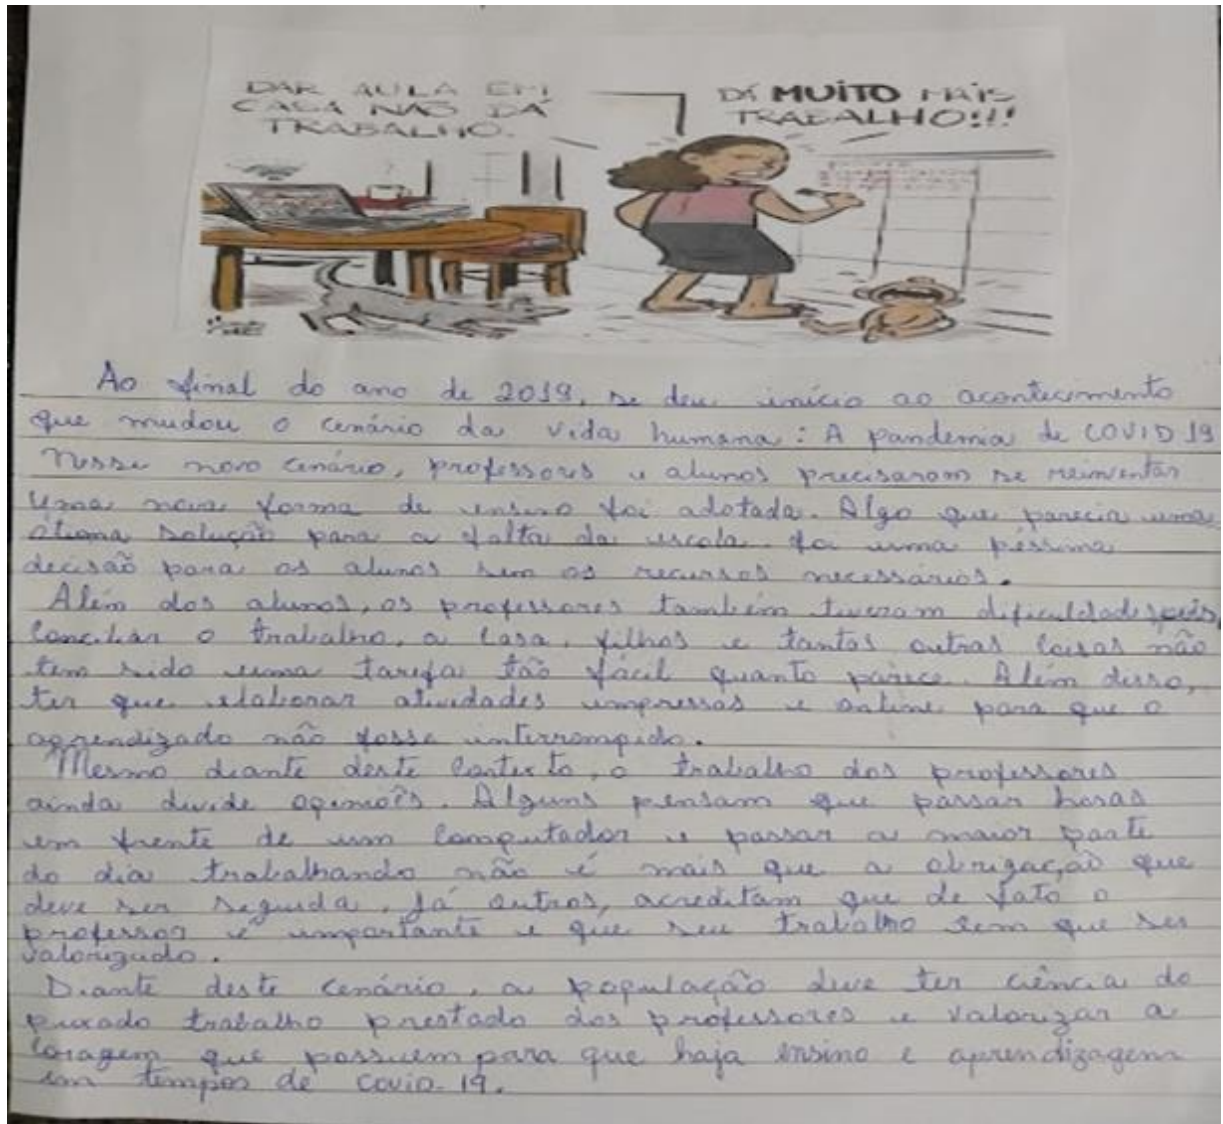 DAR AULA EM
CASA NÃO DÁ
TRABALHO.
DÁ MUITO MAIS
TRABALHO!!!
Ao final do ano de 2019, se deu início ao acontecimento
que mudou o cenário da vida humana: A pandemia de COVID 19
Nesse novo cenário, professores e alunos precisaram se reinventar
Uma nova forma de ensino foi adotada. Algo que parecia uma
ótima solução para a falta da escola. foi uma péssima
decisão para os alunos sem os recursos necessários.
Além dos alunos, os professores também tiveram dificuldades pois,
Conciliar o trabalho, a casa, filhos e tantas outras coisas não
tem sido uma tarefa tão fácil quanto parece. Além disso,
ter que elaborar atividades impressas e online para que o
aprendizado não fosse interrompido.
Mesmo diante deste contexto, o trabalho dos professores
ainda divide opiniões. Alguns pensam que passar horas
em frente de um computador e passar a maior parte
do dia trabalhando não é mais que a obrigação que
deve ser seguida. Já outros, acreditam que de fato o
professor é importante e que seu trabalho tem que ser
valorizado.
Diante deste cenário, a população deve ter ciência do
puxado trabalho prestado dos professores e valorizar a
coragem que possuem para que haja ensino e aprendizagem
em tempos de covid-19.